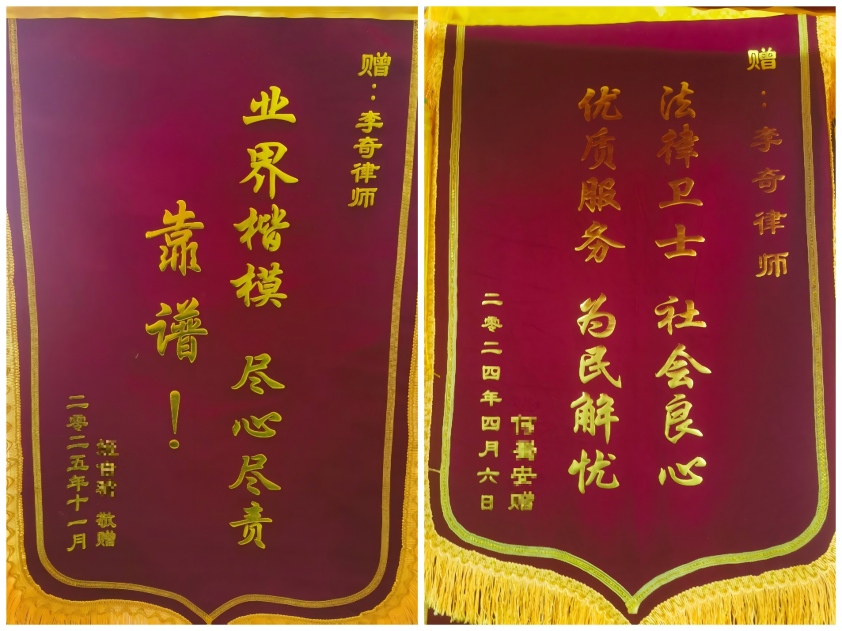 赠：李奇律师
业界楷模 尽心尽责
靠谱！
敬赠
二零二五年十一月
赠：李奇律师
法律卫士 社会良心
优质服务 为民解忧
安赠
二零二四年四月六日